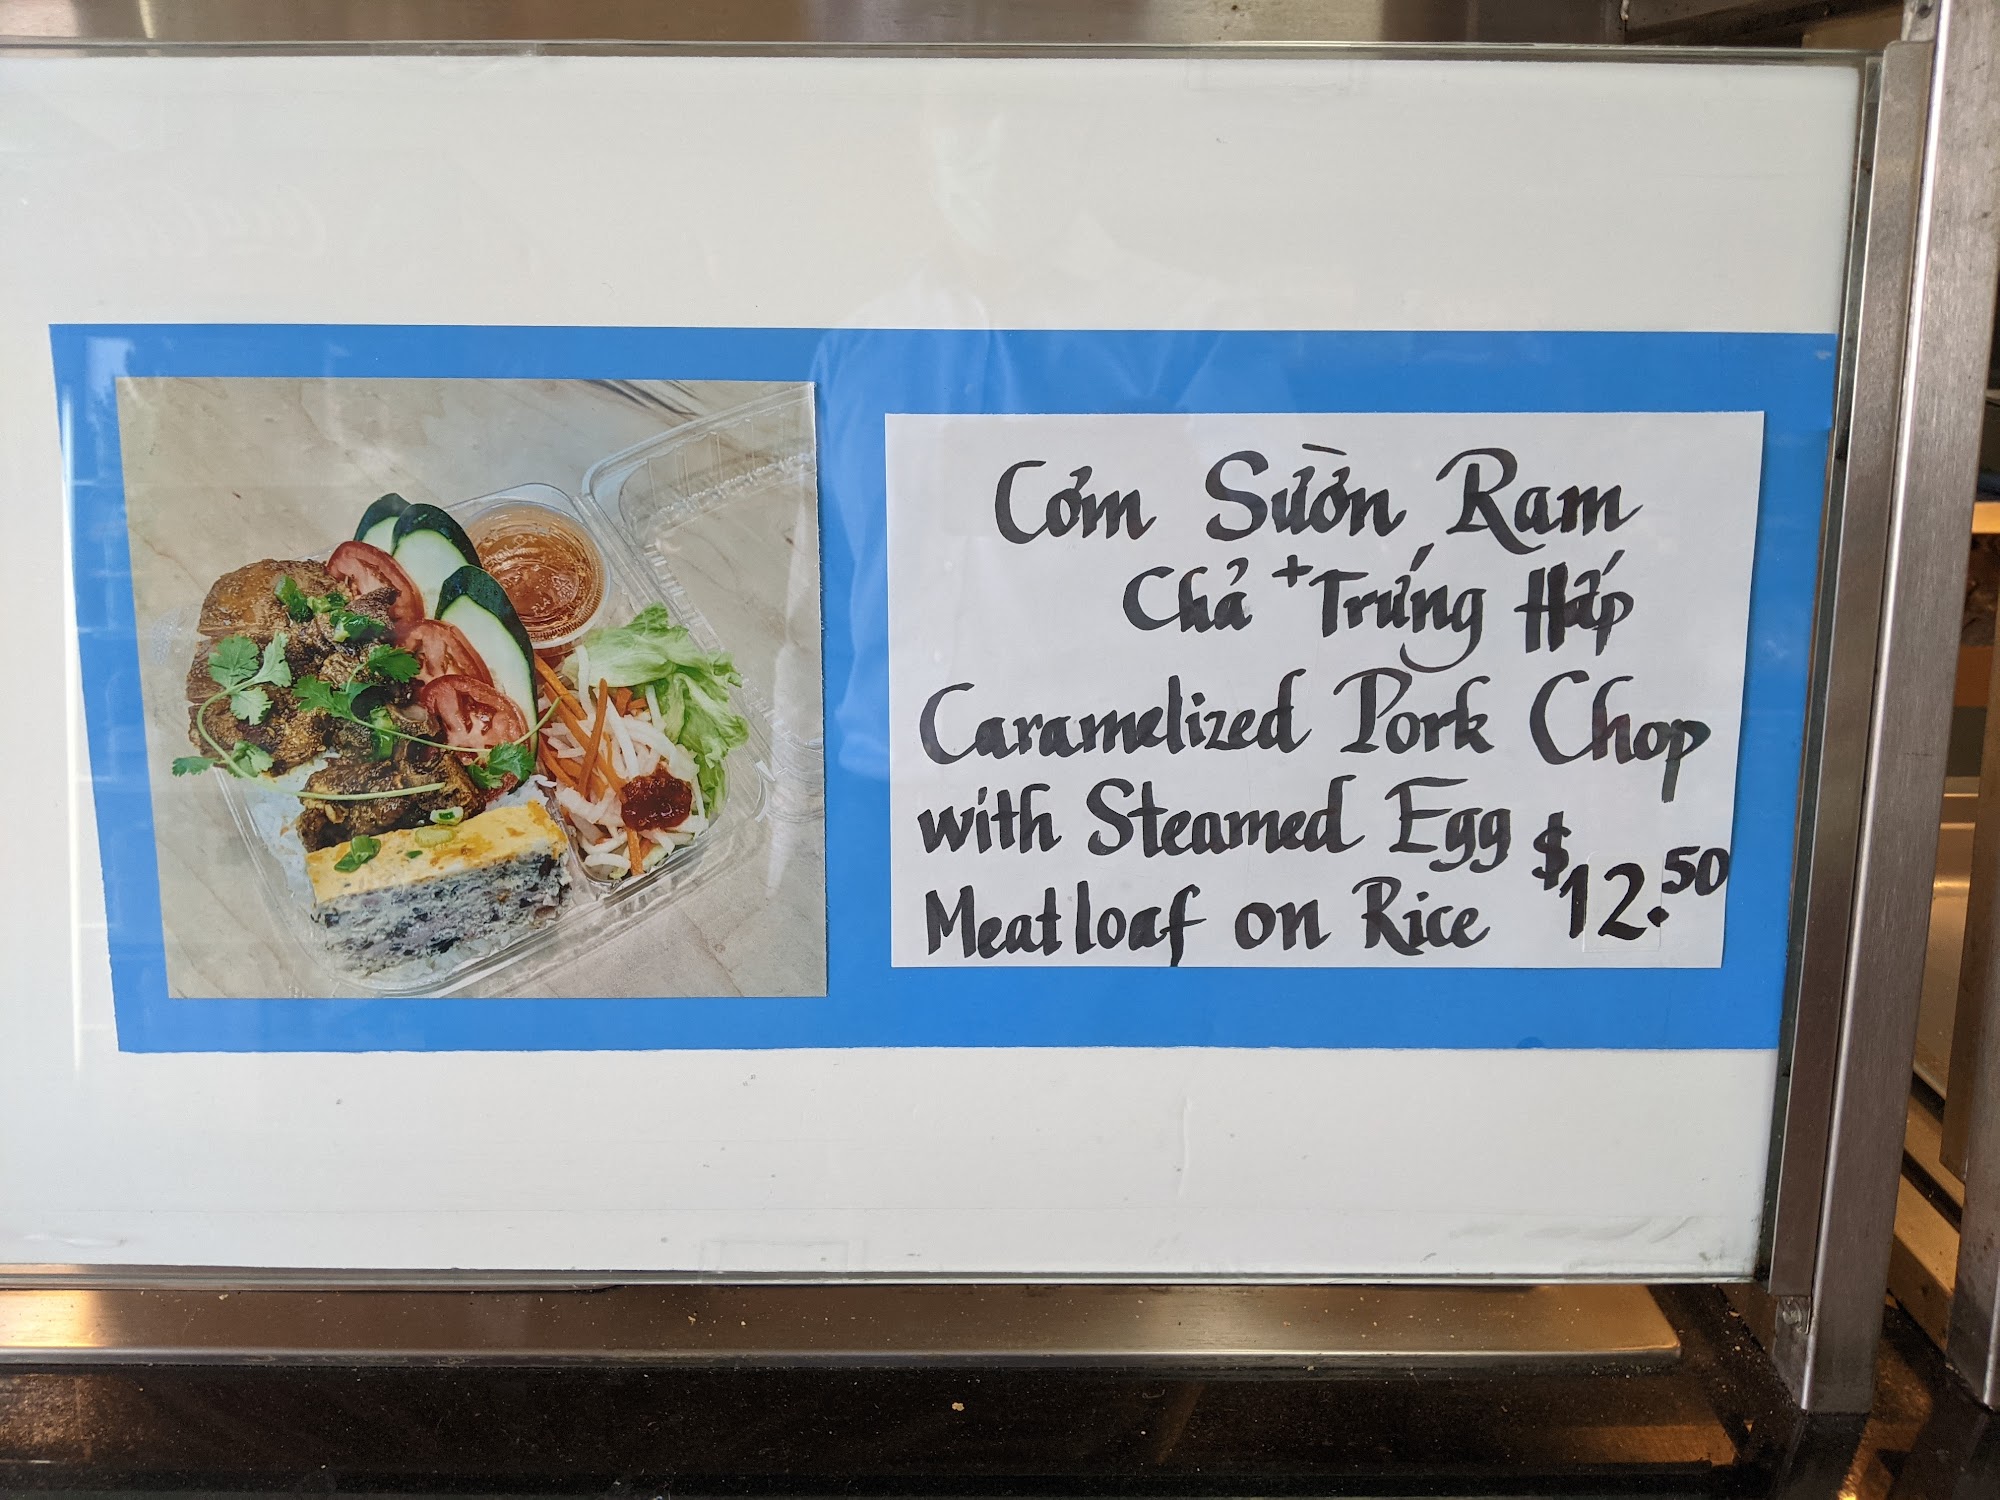 Cơm Sườn Ram
Chả + Trứng Hấp
Caramelized Pork Chop
with Steamed Egg
Meatloaf on Rice $12.50